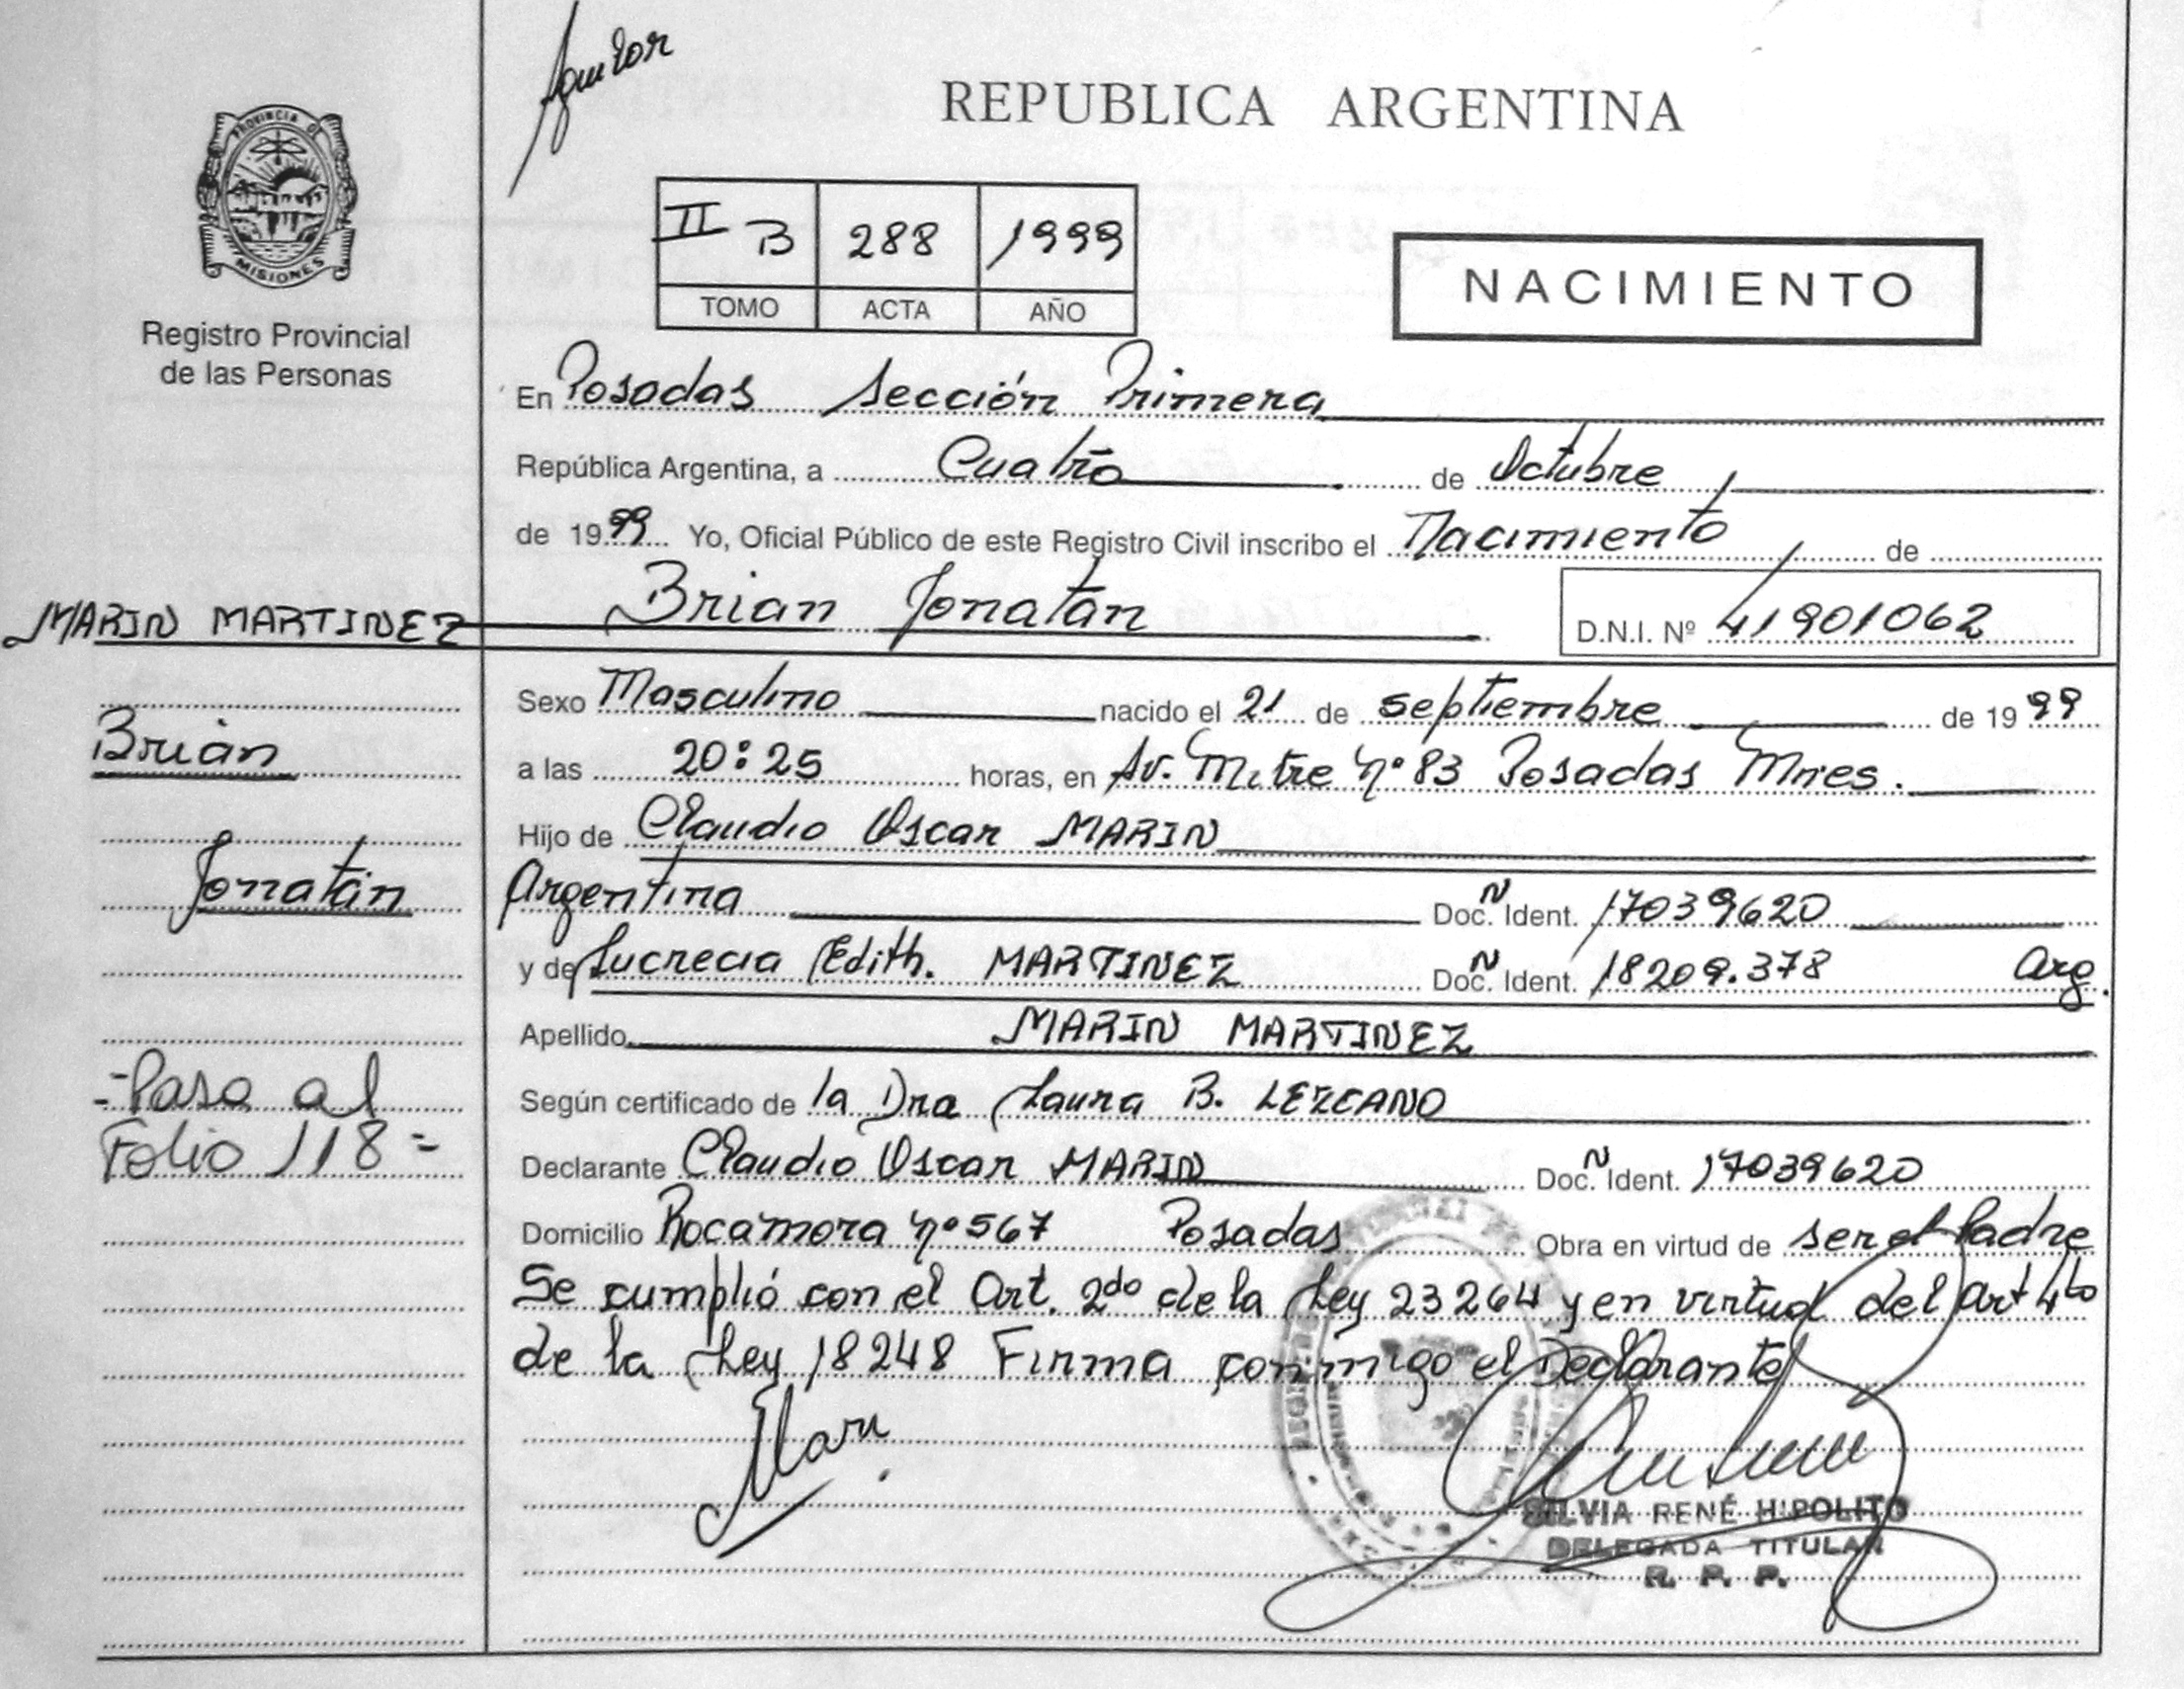 PROVINCIA DE
MISIONES
Registro Provincial
de las Personas
MARIN MARTINEZ
Brian
Jonatan
-Pasa al
Folio 118=
REPUBLICA ARGENTINA
II B 288 1999
TOMO ACTA AÑO
NACIMIENTO
En Posadas Sección Primera
República Argentina, a Cuatro de Octubre
de 1999 Yo, Oficial Público de este Registro Civil inscribo el Nacimiento de
Brian Jonatan D.N.I. Nº 41901062
Sexo Masculino nacido el 21 de septiembre de 1999
a las 20:25 horas, en Av. Mitre nº 83 Posadas Mnes.
Hijo de Claudio Oscar MARIN
Argentina Doc. Ident. 17039620
y de Lucrecia Edith. MARTINEZ Doc. Ident. 18209.378 Arg.
Apellido MARIN MARTINEZ
Según certificado de la Dra Laura B. LEZCANO
Declarante Claudio Oscar MARIN Doc. Ident. 17039620
Domicilio Rocamora nº 567 Posadas Obra en virtud de ser el Padre
Se cumplió con el Art. 2do de la Ley 23264 y en virtud del art 4to
de la Ley 18248 Firma conmigo el Declarante
SILVIA RENÉ HIPOLITO
DELEGADA TITULAR
R. P. P.